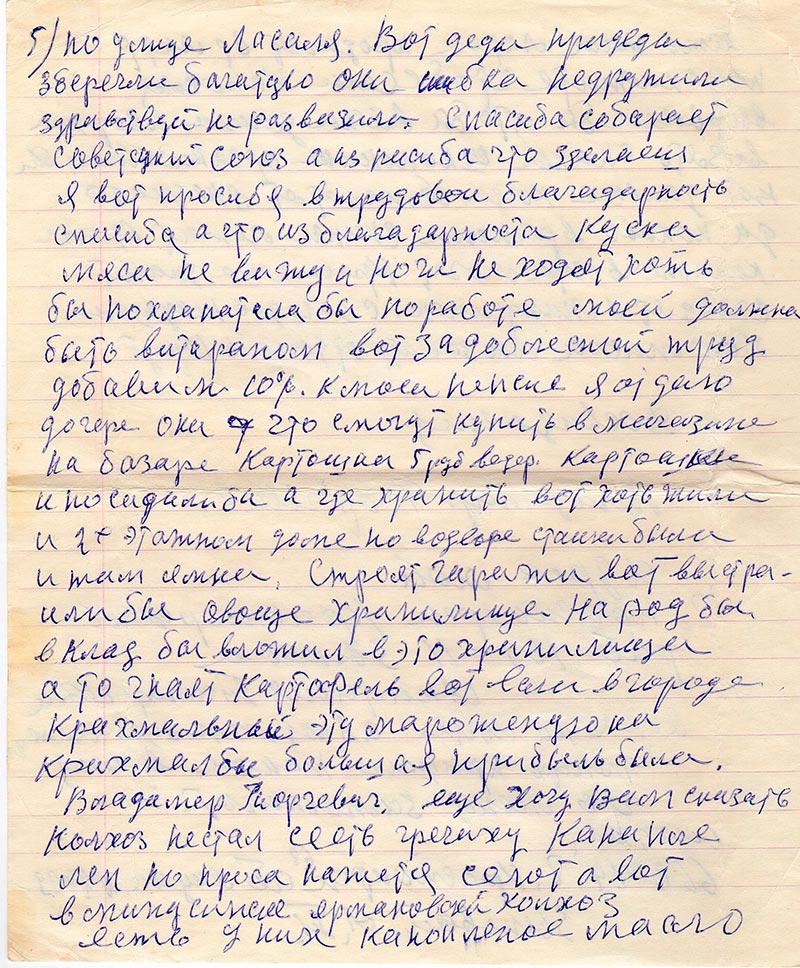 5) по улице Ласаля. Вот деды прадеды
зберечли багатцво они недружили
здравствуй не развазили. Спасиба собарает
Советцкий Союз а из писиба что зделаеш
я вот просибя в трудовой благадарность
спасиба а что из благадарноста Куска
мяса не вижу и ноги не ходят хоть
бы похлапатела бы поработе моей должна
быть витараном вот за доблесной труд
добавили 10%. к моей пенсие я отдало
дочере они что смогут купить в магазине
на базаре Картошка 5 руб ведер. Картошки
и посадилиба а где хранить вот хоть жили
и 2х этажном доме но во дворе стайки были
и там ямка. Строят гаражи вот выстра-
или бы овоще хранилище. На род бы
в клад бы вложил в это хранилище
а то гнаят Картофель вот вели в городе
Крахмальный эту марожендю на
крахмал бы большая прибыль была.
Владамер Гиорчевич, еще хочу Вам сказать
Колхоз нестал сееть гречиху Канапле
лен но проса кажется сеют а вот
в минусинске ярмановской колхоз
есть у них канопленое масло